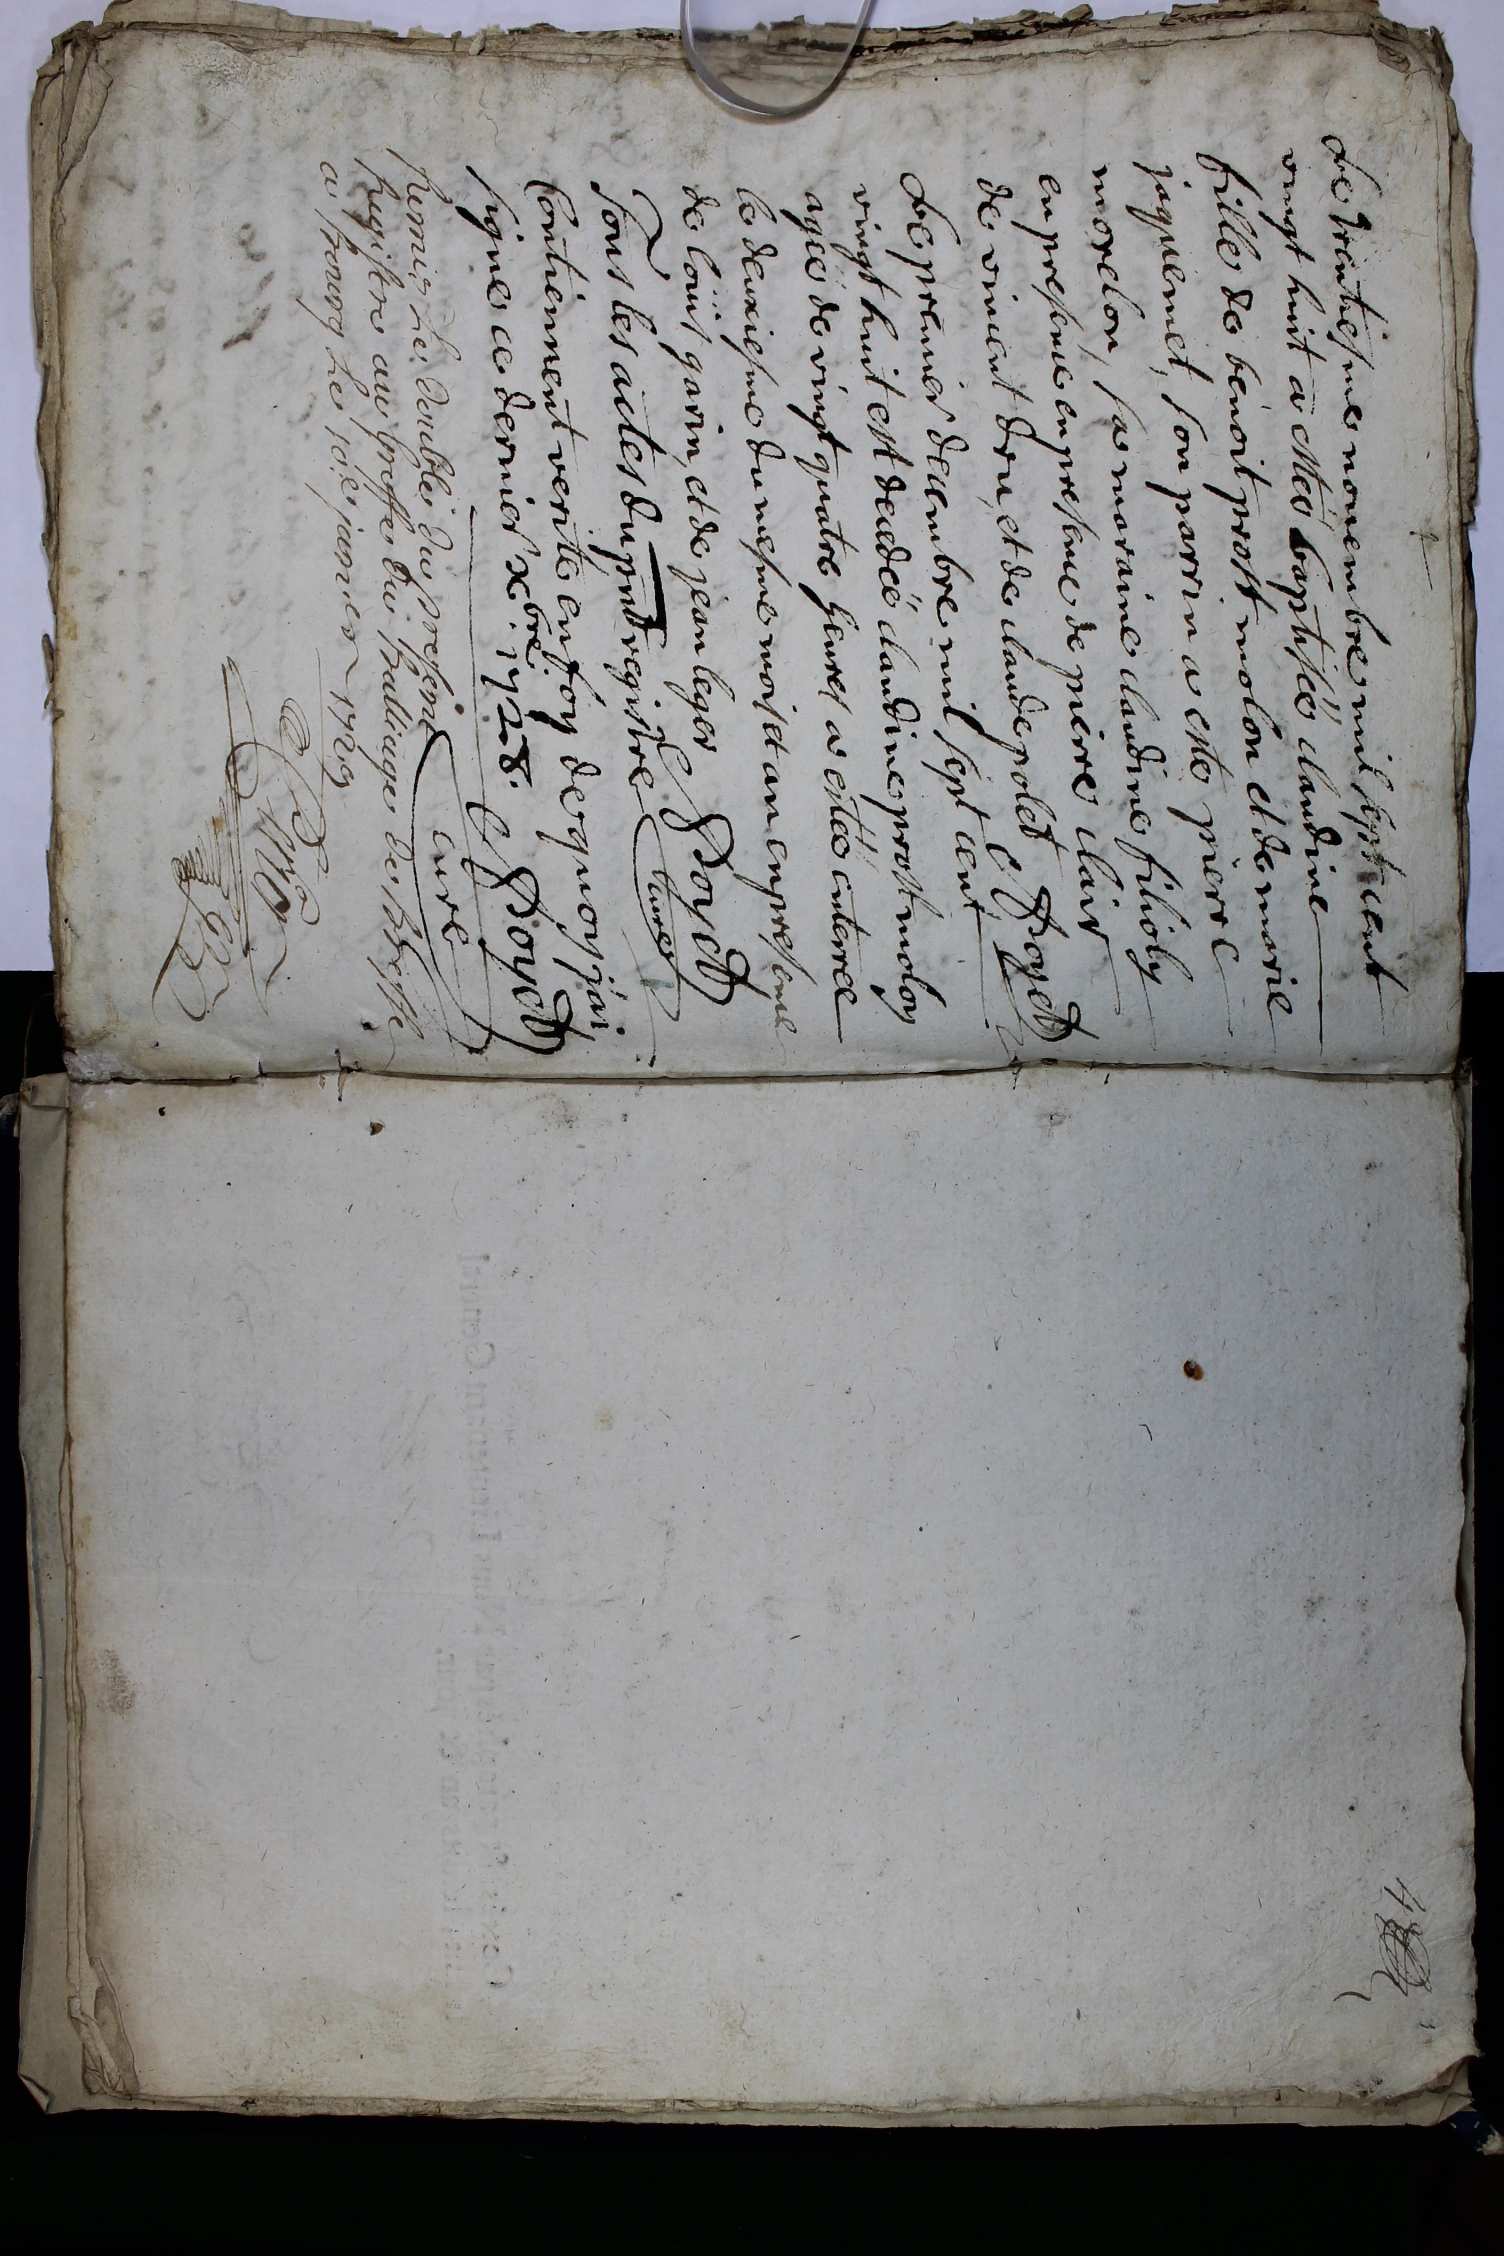 Le trentiesme nouembre mil sept cent
vingt huit a estéé baptiséé claudine
fille de benoit prost molon et de marie
jaquemet, son parrin a este pierre
morelon, sa maraine claudine filioly
en presence en presence de pierre clair
de vincent dru, et de claude polet C Doyet
Le premier decembre mil sept cent
vingt huit est decedéé claudine prost molon
agéé de vingt quatre heures a estéé enterree
le deuxiesme du mesme mois et an en presence
de louis garin, et de jean leger C Doyet
Tous les actes du pnt registre curé
Contiennent verité en foy de quoy j'ai
signé ce dernier xbre 1728. C Doyet
curé
Remis Le double du present
Registre au Greffe du Balliage de Bresse
a bourg Le 10e janvier 1729